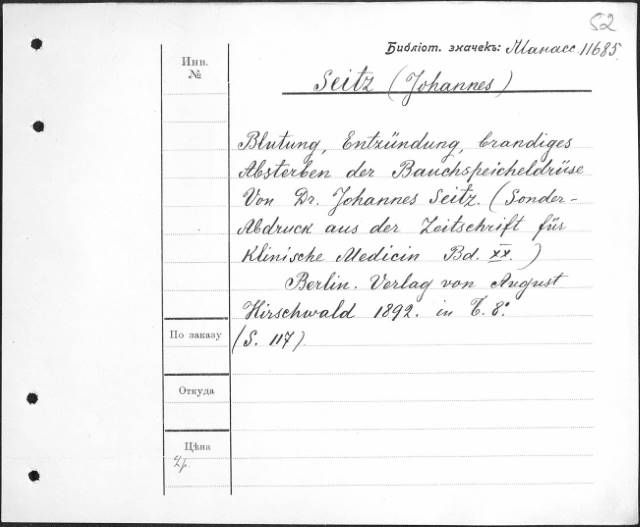 52
Библіот. значекъ: Манасс 11685
Инв.
№
Seitz (Johannes)
Blutung, Entzündung, brandiges
Absterben der Bauchspeicheldrüse
Von Dr. Johannes Seitz. (Sonder-
Abdruck aus der Zeitschrift für
Klinische Medicin Bd. XX.)
Berlin. Verlag von August
Hirschwald 1892. in 8º
По заказу
(S. 117)
Откуда
Цѣна